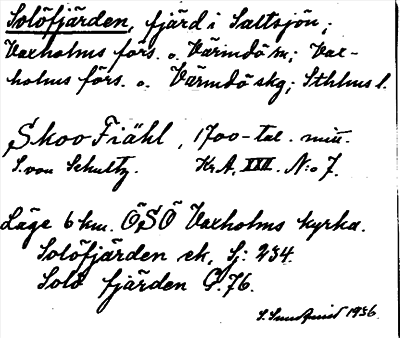 Solöfjärden, fjärd i Saltsjön;
Vaxholms förs. o. Värmdö m; Vax-
holms förs. o. Värmdö skg; Sthlms l.
Skoo Fiähl, 1700-tal. mitt.
S. von Schultz. Kr.A. XXII. N:o 7.
Läge 6 km. ÖSÖ Vaxholms kyrka.
Solöfjärden ek. Sj: 234.
Solö fjärden G. 76.
1936